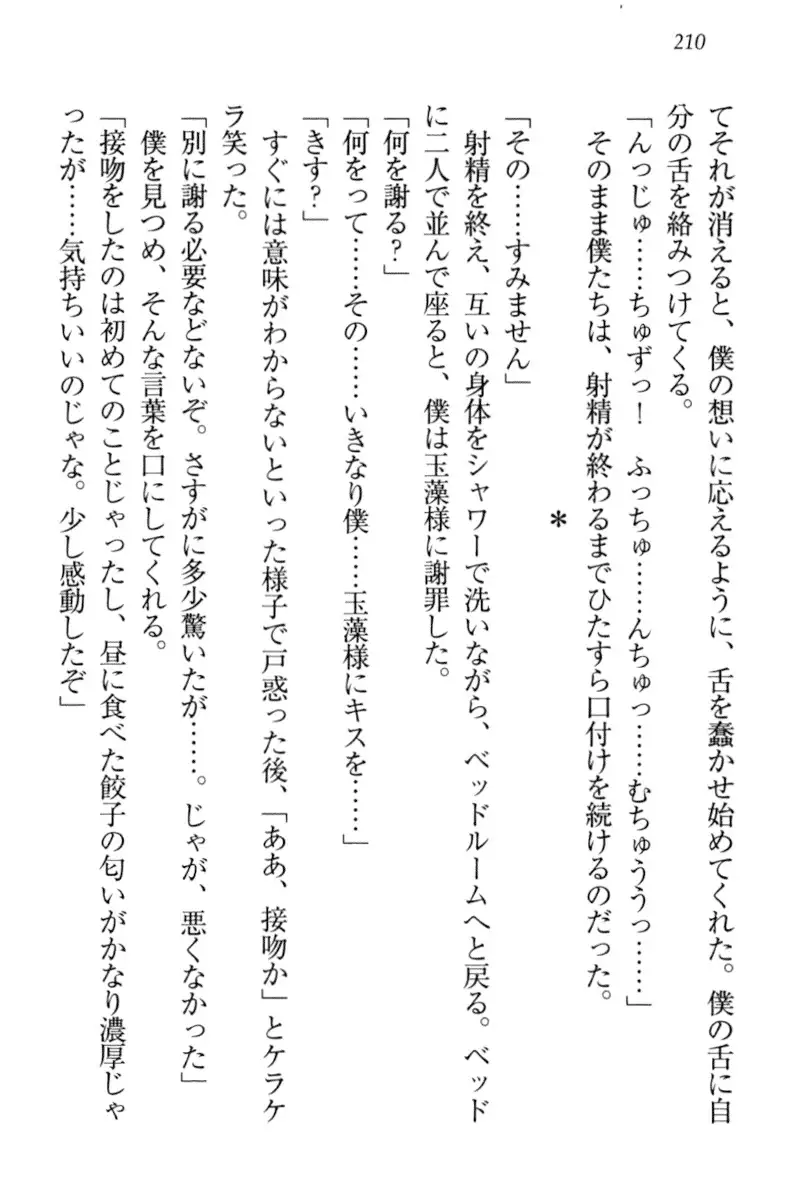 210
てそれが消えると、僕の想いに応えるように、舌を蠢かせ始めてくれた。僕の舌に自
分の舌を絡みつけてくる。
「んっじゅ……ちゅずっ！　ふっちゅ……んちゅっ……むちゅううっ……」
そのまま僕たちは、射精が終わるまでひたすら口付けを続けるのだった。
＊
「その……すみません」
射精を終え、互いの身体をシャワーで洗いながら、ベッドルームへと戻る。ベッド
に二人で並んで座ると、僕は玉藻様に謝罪した。
「何を謝る？」
「何をって……その……いきなり僕……玉藻様にキスを……」
「きす？」
すぐには意味がわからないといった様子で戸惑った後、「ああ、接吻か」とケラケ
ラ笑った。
「別に謝る必要などないぞ。さすがに多少驚いたが……。じゃが、悪くなかった」
僕を見つめ、そんな言葉を口にしてくれる。
「接吻をしたのは初めてのことじゃったし、昼に食べた餃子の匂いがかなり濃厚じゃ
ったが……気持ちいいのじゃな。少し感動したぞ」